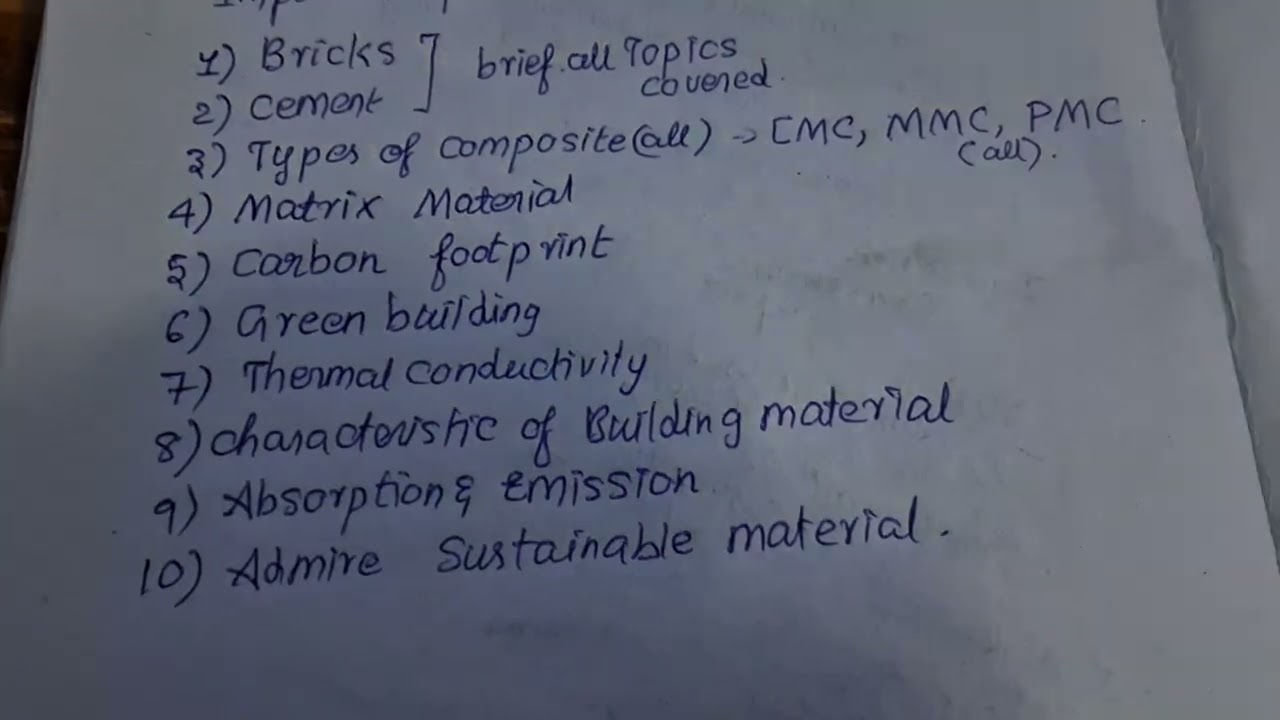 1) Bricks ] brief. all Topics
covered.
2) Cement
3) Types of composite (all) → CMC, MMC, PMC.
(all).
4) Matrix Material
5) Carbon footprint
6) Green building
7) Thermal conductivity
8) characteristic of Building material
9) Absorption & Emission
10) Admire Sustainable material.